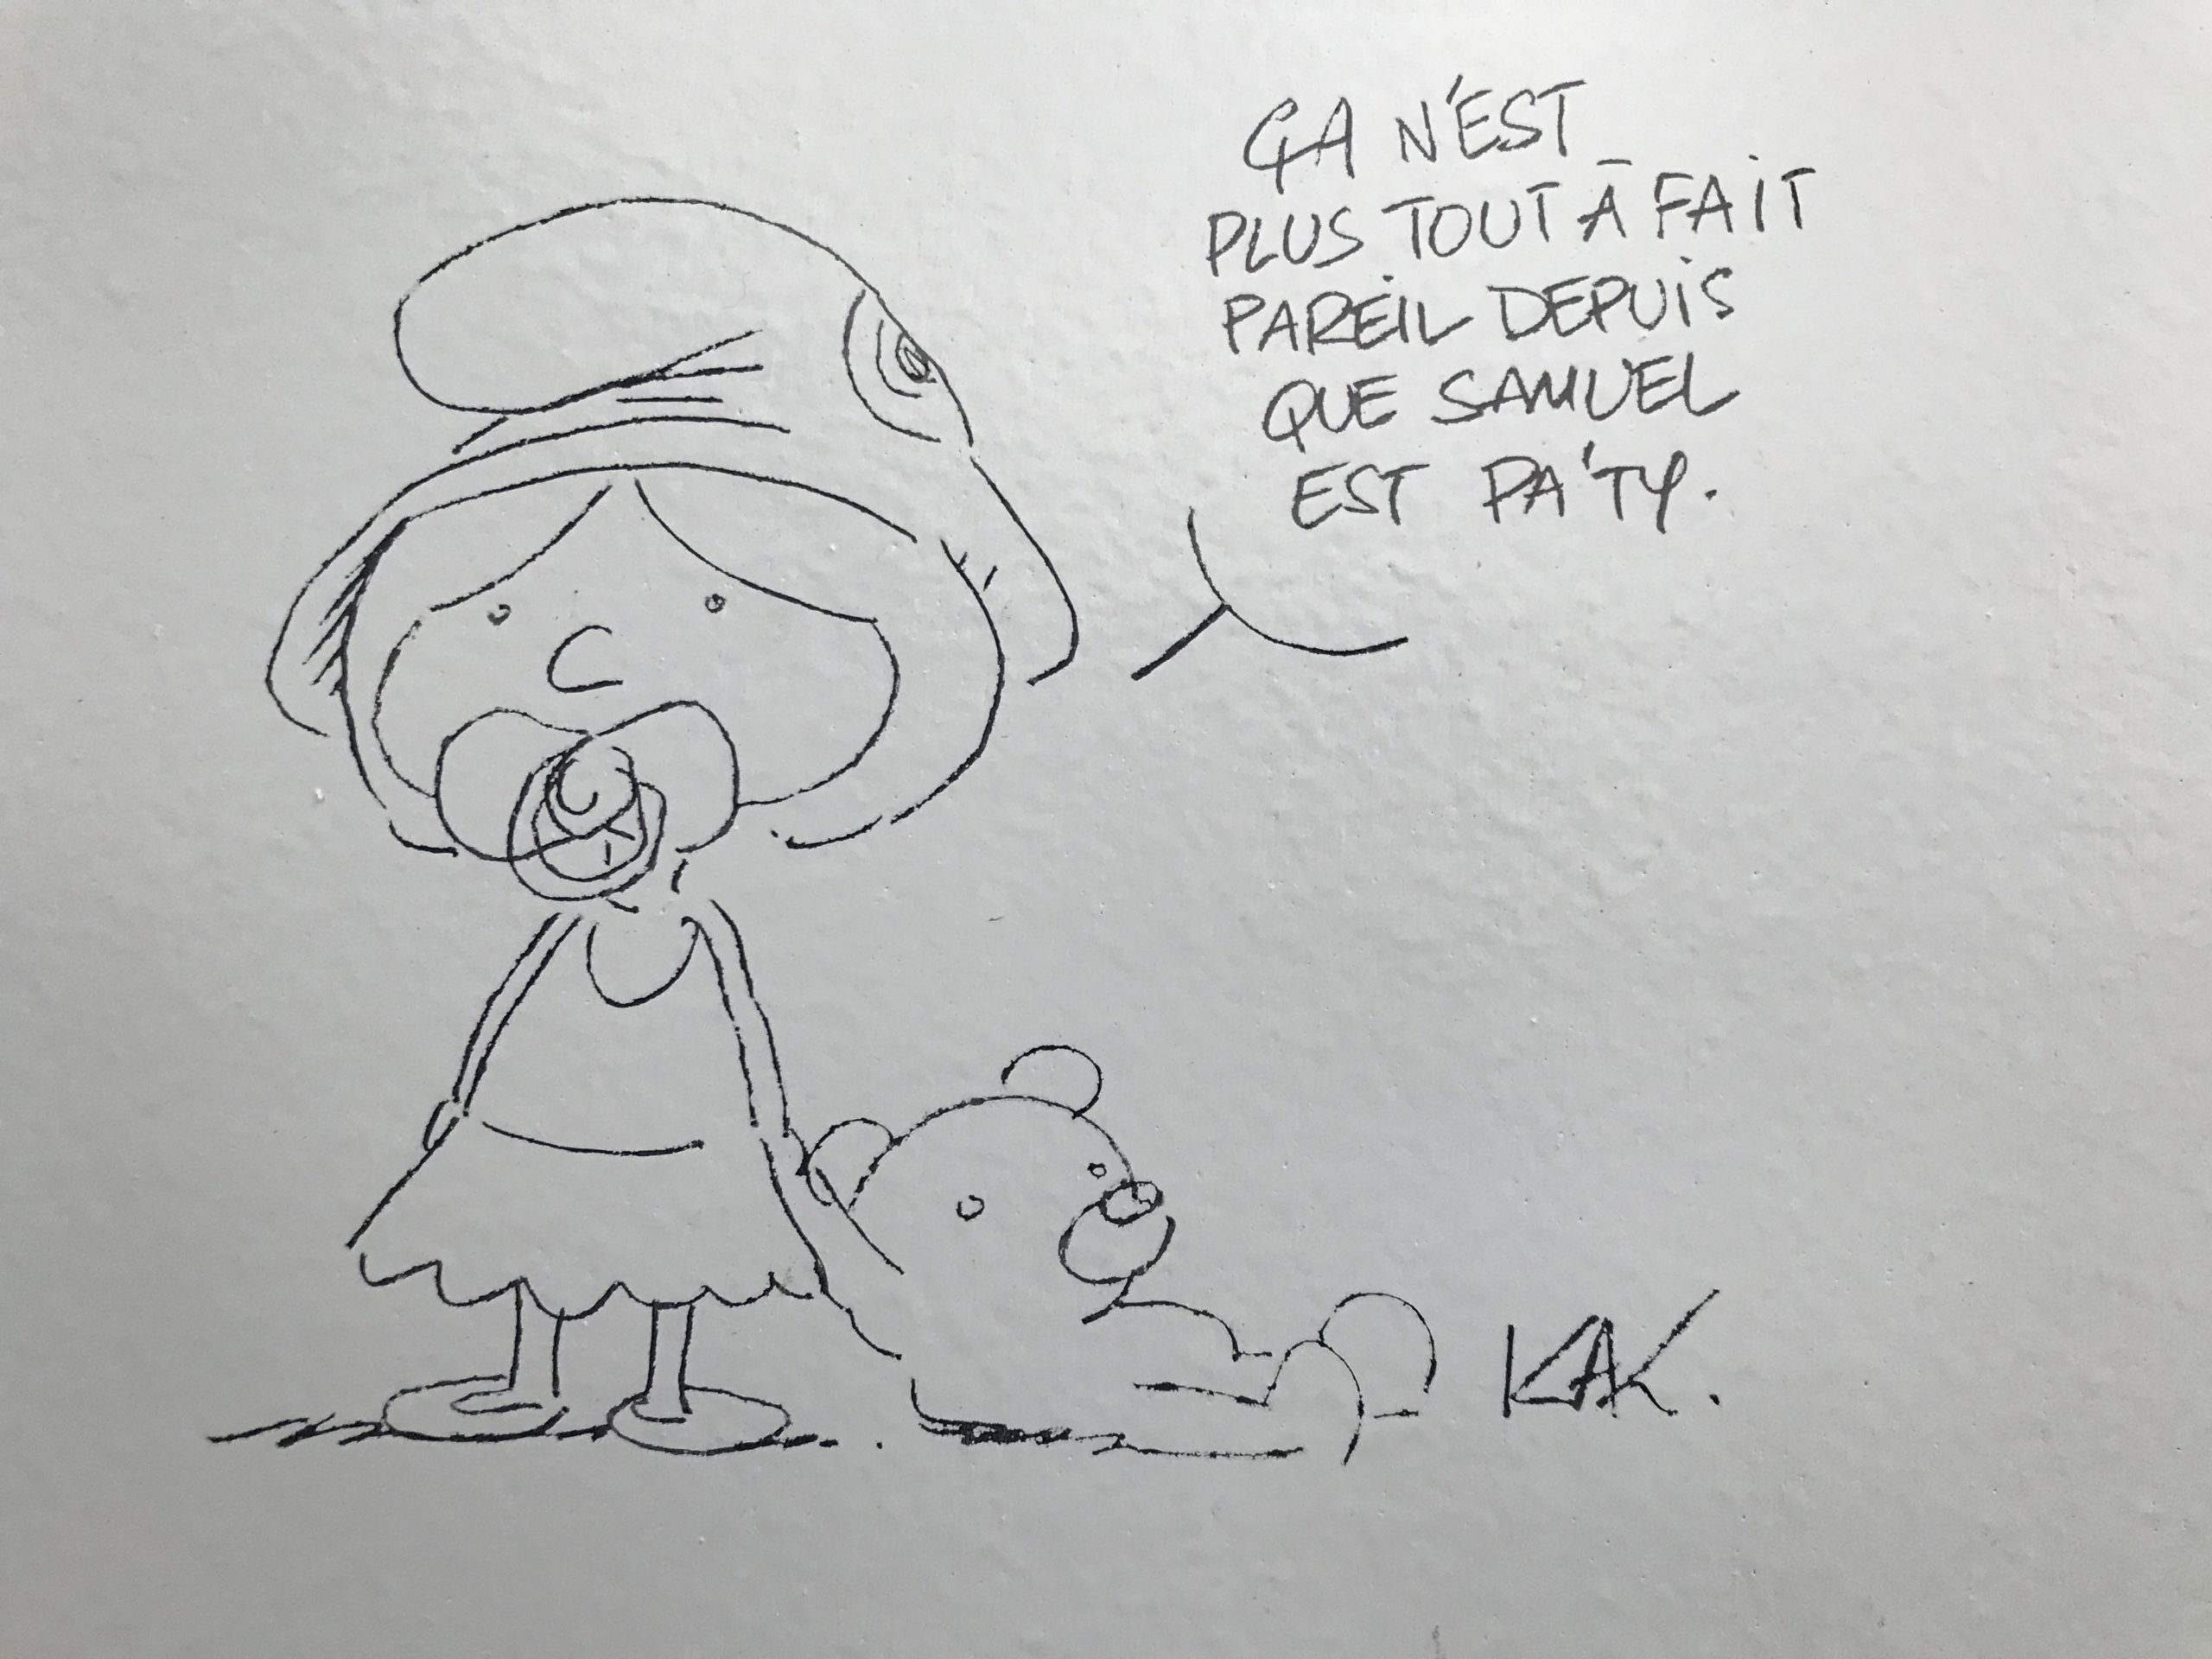 ÇA N'EST
PLUS TOUT À FAIT
PAREIL DEPUIS
QUE SAMUEL
EST PA'TY.
KAK.